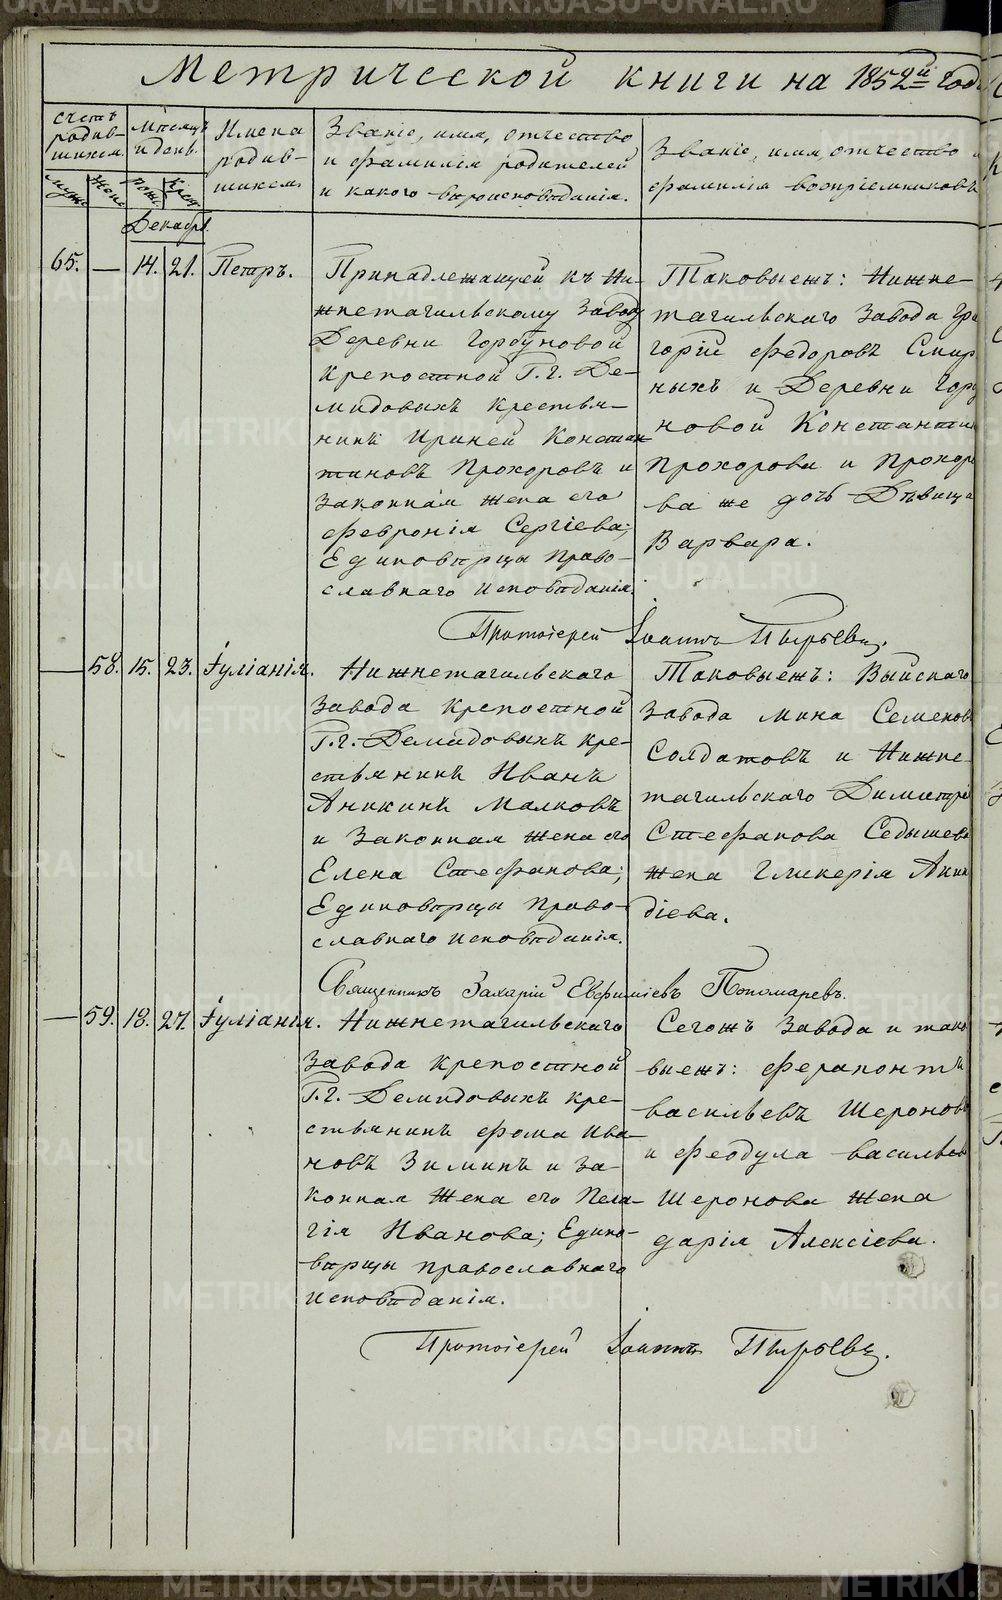 Метрической книги на 1852й год
Счетъ родив-шихся.
Мужс
Женс
Мѣсяцъ и день.
Рожд
Крещ
Имена родив-шихся
Званіе, имя, отчество
и фамилія родителей
и какого вѣроисповѣданія.
Званіе, имя, отчество и
фамилія воспріемниковъ
Декабрь.
65. — 14. 21. Петръ.
Принадлежащей къ Ни-
жнетагильскому Заводу
Деревни Горбуновой
крепостной Г.г. Де-
мидовыхъ крестья-
нинъ Ириней Констан-
тиновъ Прохоровъ и
законная жена его
Февронія Сергіева;
Единовѣрцы Право-
славнаго исповѣданія.
Таковыежъ: Нижне-
тагильскаго Завода Гри
горій Федоровъ Смир
ныхъ и Деревни Горбу
новой Константин
Прохорова и Прохоро
ва же дочь Дѣвица
Варвара.
Протоіерей Іоаннъ Пырьевъ.
— 58. 15. 23. Іуліанія.
Нижнетагильскаго
Завода крепостной
Г.г. Демидовыхъ кре-
стьянинъ Иванъ
Аникинъ Малковъ
и законная жена его
Елена Стефанова;
Единовѣрцы Право-
славнаго исповѣданія.
Таковыежъ: Выйскаго
Завода Мина Семенов
Солдатовъ и Нижне-
тагильскаго Димитрі
Стефанова Седышева
жена Гликерія Арка
діева.
Священникъ Захарій Евфиміевъ Пономаревъ.
— 59. 18. 27. Іуліанія.
Нижнетагильскаго
Завода крепостной
Г.г. Демидовыхъ кре-
стьянинъ Фома Ива-
новъ Зиминъ и за-
конная жена его Пела-
гія Иванова; Едино-
вѣрцы православнаго
исповѣданія.
Сегожъ Завода и тако
выежъ: Ферапонтъ
Васильевъ Шероновъ
и Феодула Васильев
Шеронова жена
Дарія Алексіева.
Протоіерей Іоаннъ Пырьевъ.
METRIKI.GASO-URAL.RU